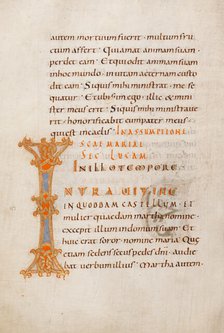 autem mortuum fuerit · multum fru
ctum affert · Qui amat animam suam
perdet eam · Et qui odit animam suam
in hoc mundo · in uitam aeternam custo
dit eam · Siquis mihi ministrat · me se
quatur · Et ubi sum ego · illic & mini
ster meus erit · Siquis mihi ministra
meus qui est in caelis · IN ASSUMPTIONE
SCAE MARIAE
SEC LUCAM
IN ILLO TEMPORE
INTRAUIT IHS
IN QUODDAM CASTELLUM · ET
mulier quaedam martha nomine
excepit illum in domum suam · Et
huic erat soror nomine maria · Quae
etiam sedens secus pedes dni · audie
bat uerbum illius · Martha autem